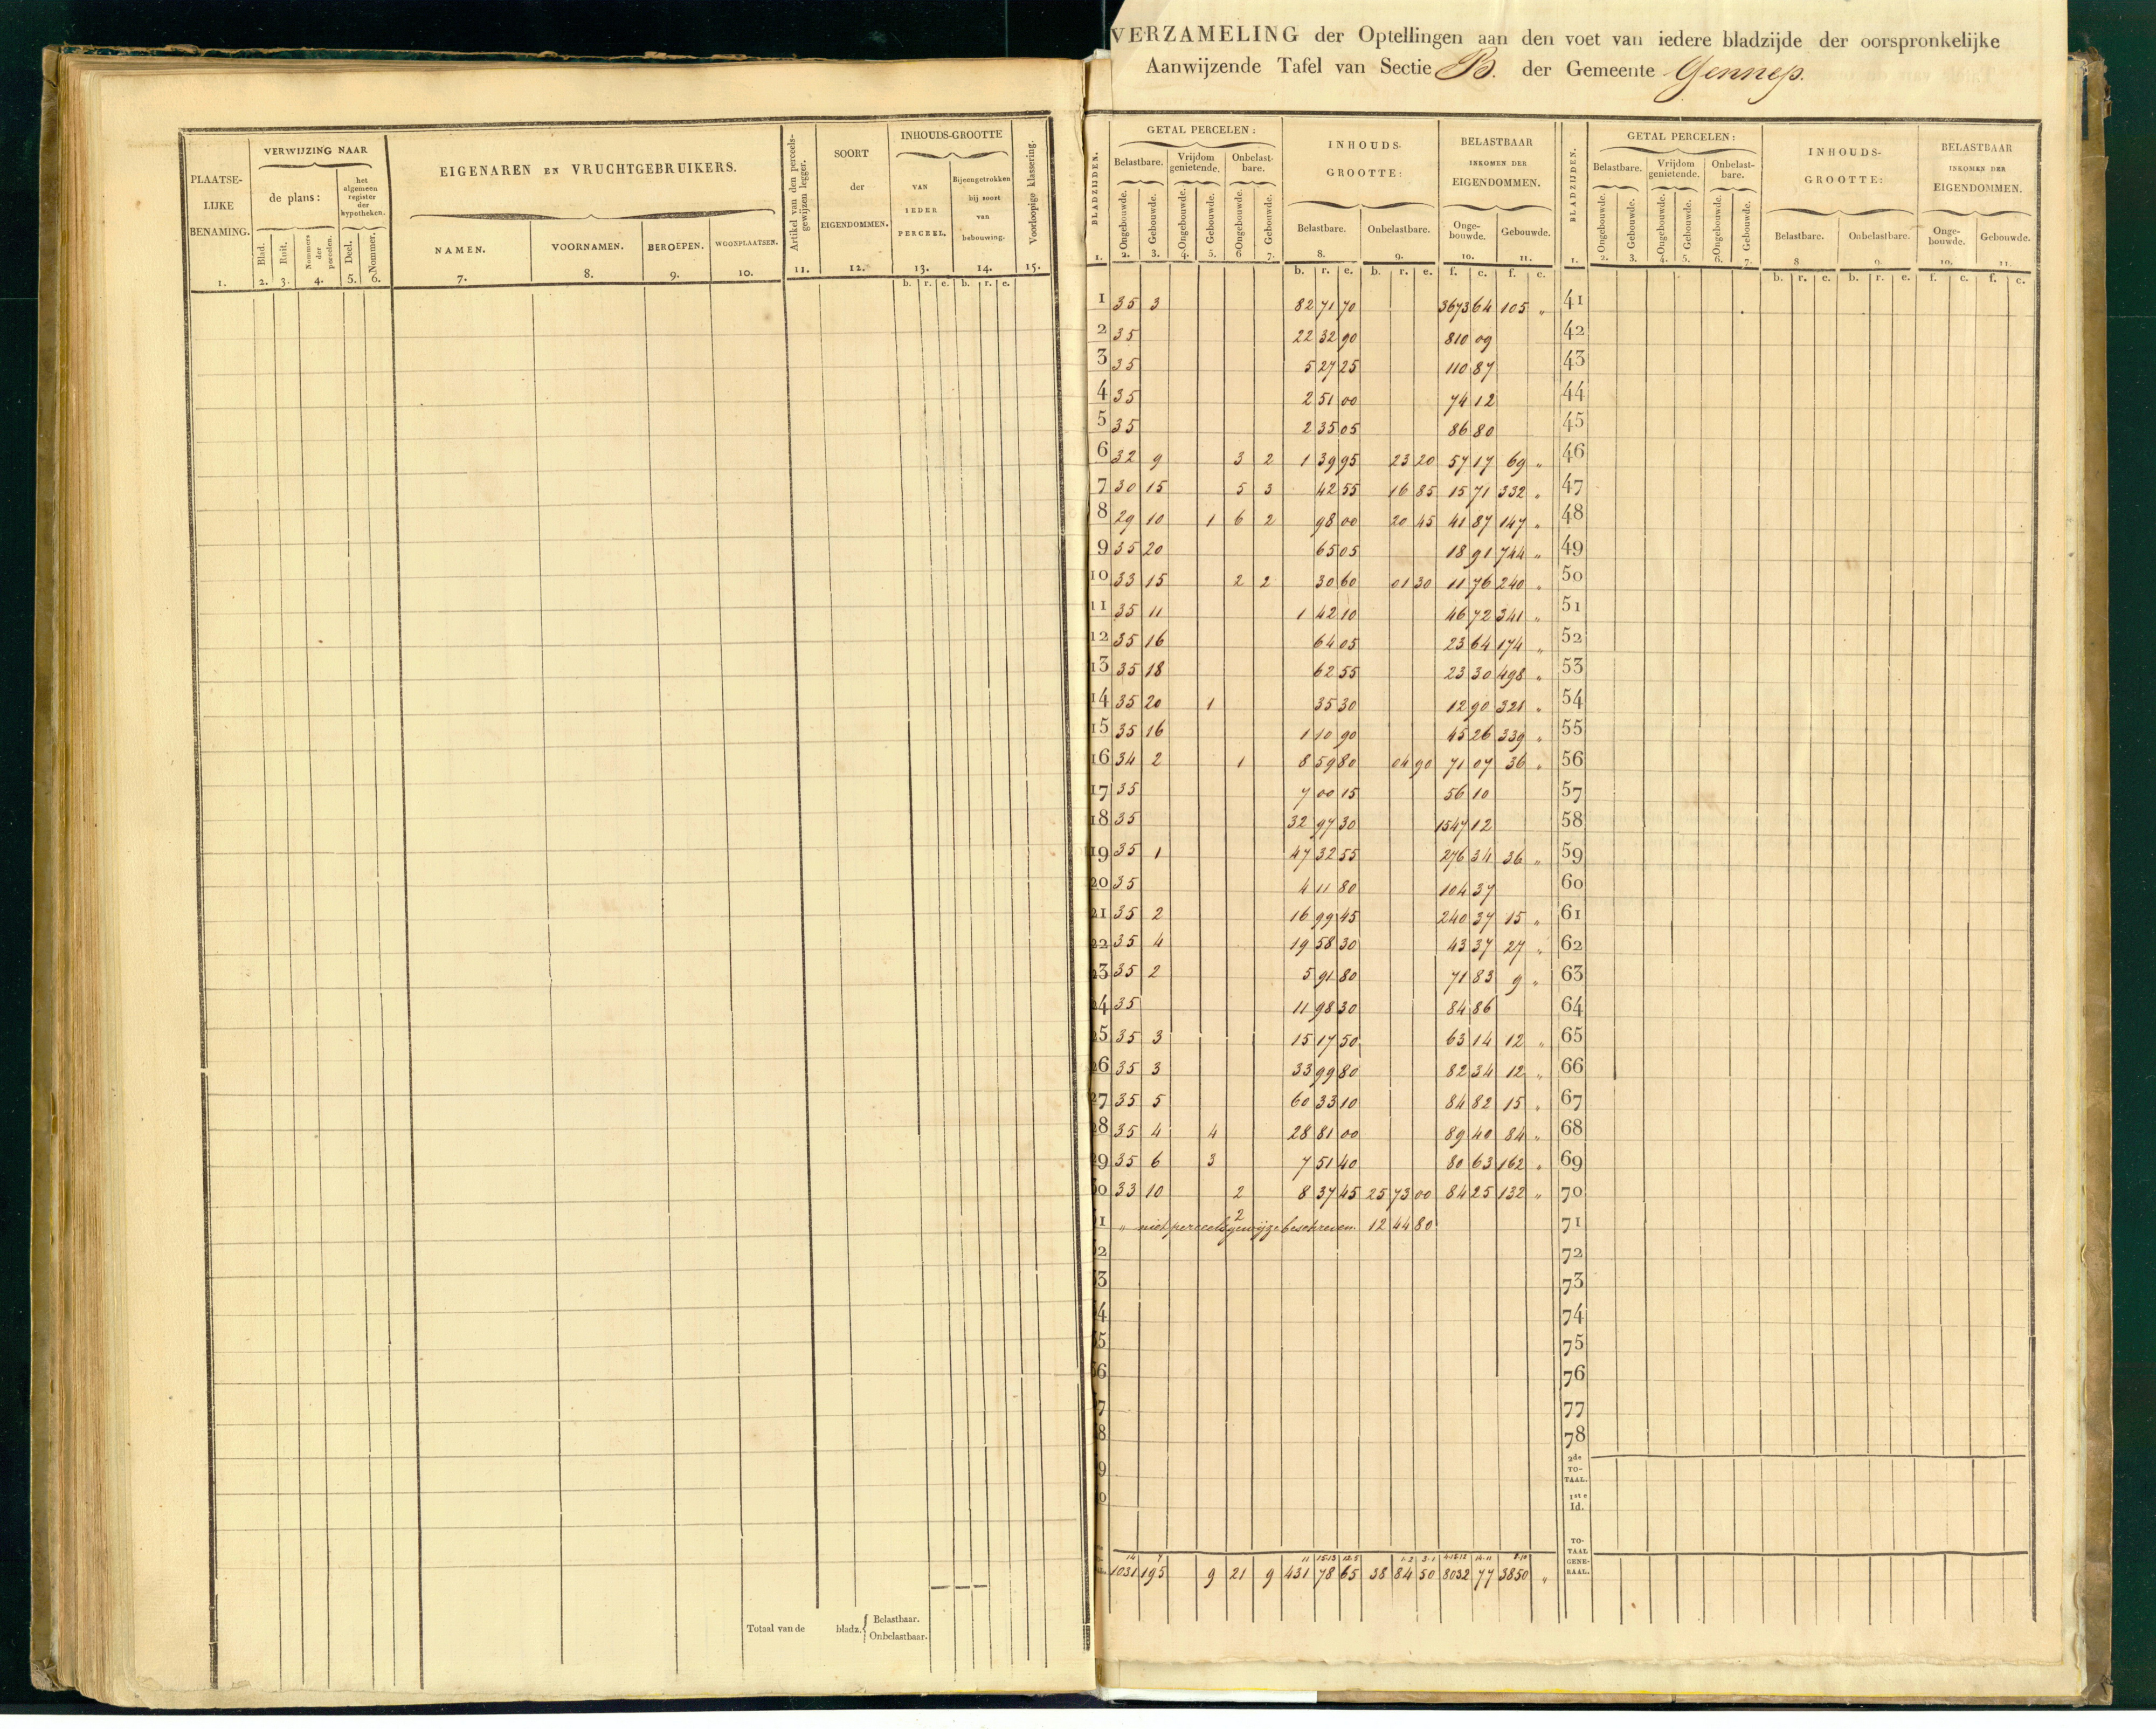 VERZAMELING der Optellingen aan den voet van iedere bladzijde der oorspronkelijke
Aanwijzende Tafel van Sectie B. der Gemeente Gennep.
PLAATSELIJKE BENAMING. 1.
VERWIJZING NAAR
de plans:
Blad. 2.
Ruit. 3.
Nommers der perceelen. 4.
het algemeen register der hypotheken.
Deel. 5.
Nommer. 6.
EIGENAREN EN VRUCHTGEBRUIKERS.
NAMEN. 7.
VOORNAMEN. 8.
BEROEPEN. 9.
WOONPLAATSEN. 10.
Artikel van den perceelsgewijzen legger. 11.
SOORT der EIGENDOMMEN. 12.
INHOUDS-GROOTTE
VAN IEDER PERCEEL. 13.
Bijeengetrokken bij soort van bebouwing. 14.
Voorloopige klassering. 15.
b. r. e. b. r. e.
Totaal van de bladz. Belastbaar. Onbelastbaar.
BLADZIJDEN. 1.
GETAL PERCELEN:
Belastbare. Vrijdom genietende. Onbelastbare.
Ongebouwde. 2. Gebouwde. 3. Ongebouwde. 4. Gebouwde. 5. Ongebouwde. 6 Gebouwde. 7.
INHOUDS-GROOTTE:
Belastbare. 8. Onbelastbare. 9.
BELASTBAAR INKOMEN DER EIGENDOMMEN.
Ongebouwde. 10. Gebouwde. 11.
b. r. e. b. r. e. f. c. f. c.
1 35 3 82 71 70 3673 64 105 "
2 35 22 32 90 810 09
3 35 5 27 25 110 87
4 35 2 51 00 74 12
5 35 2 35 05 86 80
6 32 9 3 2 1 39 95 23 20 57 17 69 "
7 30 15 5 3 42 55 16 85 15 71 332 "
8 29 10 1 6 2 98 00 20 45 41 87 147 "
9 35 20 65 05 18 91 744 "
10 33 15 2 2 30 60 01 30 11 76 240 "
11 35 11 1 42 10 46 72 341 "
12 35 16 64 05 23 64 174 "
13 35 18 62 55 23 30 498 "
14 35 20 1 35 30 12 90 321 "
15 35 16 1 10 90 45 26 339 "
16 34 2 1 8 59 80 04 90 71 07 36 "
17 35 7 00 15 56 10
18 35 32 97 30 1547 12
19 35 1 47 32 55 276 34 36 "
20 35 4 11 80 104 37
21 35 2 16 99 45 240 37 15 "
22 35 4 19 58 30 43 37 27 "
23 35 2 5 91 80 71 83 9 "
24 35 11 98 30 84 86
25 35 3 15 17 50 63 14 12 "
26 35 3 33 99 80 82 34 12 "
27 35 5 60 33 10 84 82 15 "
28 35 4 4 28 81 00 89 40 84 "
29 35 6 3 7 51 40 80 63 162 "
30 33 10 2 8 37 45 25 73 00 84 25 132 "
31 " niet perceelsgewijze beschreven 2 12 44 80
1031 195 9 21 9 431 78 65 38 84 50 8032 77 3850 "
BLADZIJDEN. 1.
GETAL PERCELEN:
Belastbare. Vrijdom genietende. Onbelastbare.
Ongebouwde. 2. Gebouwde. 3. Ongebouwde. 4. Gebouwde. 5. Ongebouwde. 6. Gebouwde. 7.
INHOUDS-GROOTTE:
Belastbare. 8 Onbelastbare. 9.
BELASTBAAR INKOMEN DER EIGENDOMMEN.
Ongebouwde. 10. Gebouwde. 11.
b. r. e. b. r. e. f. c. f. c.
41
42
43
44
45
46
47
48
49
50
51
52
53
54
55
56
57
58
59
60
61
62
63
64
65
66
67
68
69
70
71
72
73
74
75
76
77
78
2de TOTAAL.
1ste Id.
TOTAAL GENERAAL.